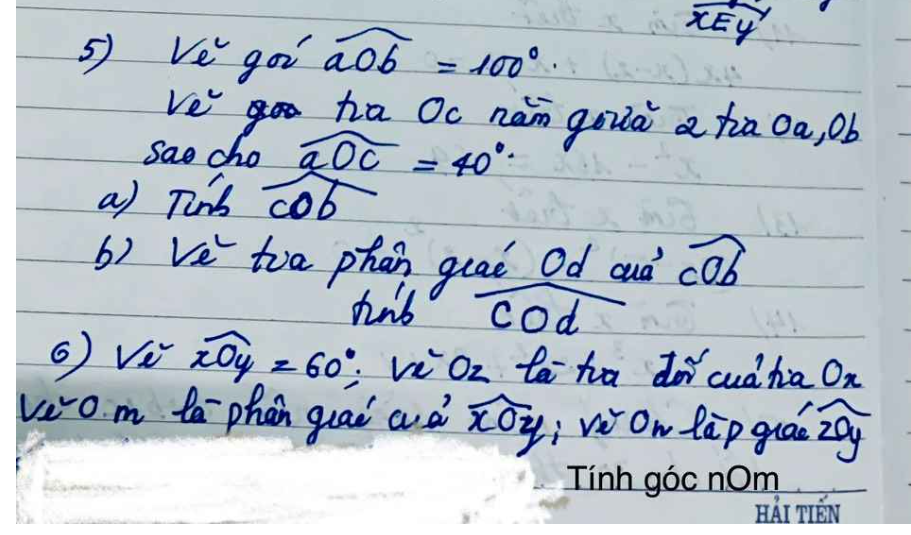 xEy
5) Vẽ góc aOb = 100°.
Vẽ tia Oc nằm giữa 2 tia Oa, Ob
sao cho aOc = 40°.
a) Tính cOb
b) Vẽ tia phân giác Od của cOb
tính COd
6) Vẽ xOy = 60°; Vẽ Oz là tia đối của tia Ox
Vẽ O.m là phân giác của xOy; vẽ On là p giác zOy
Tính góc nOm
HẢI TIẾN